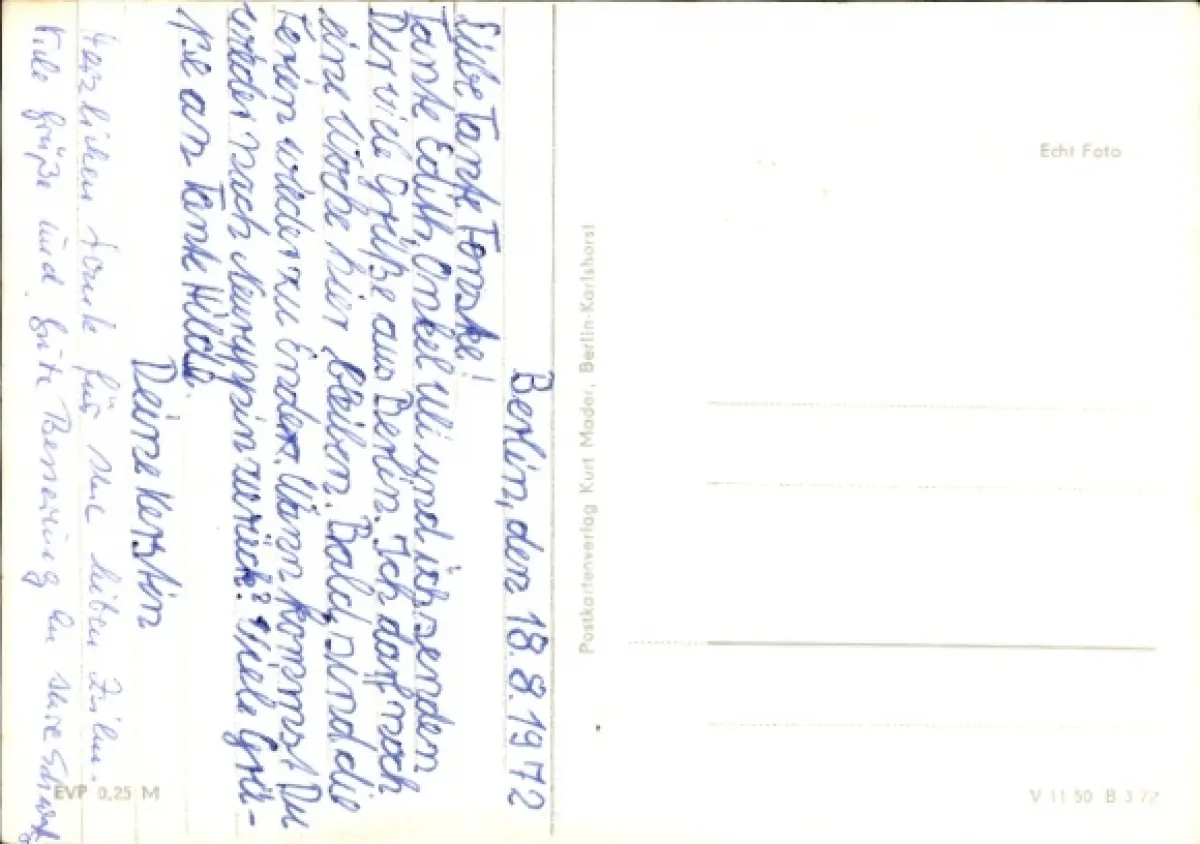 Berlin, den 18.8.1972
Liebe Tante Tonske!
Tante Edith, Onkel Uli und ich senden
Dir viele Grüße aus Berlin. Ich darf noch
eine Woche hier bleiben. Bald sind die
Ferien wieder zu Ende. Wann kommst Du
wieder nach Neuruppin zurück? Viele Grü-
ße an Tante Hilde.
Deine Kerstin
Herzlichen Dank für die lieben Zeilen.
Viele Grüße und gute Besserung
Postkartenverlag Kurt Mader, Berlin-Karlshorst
Echt Foto
EVP 0,25 M
V 11 50 B 3 72